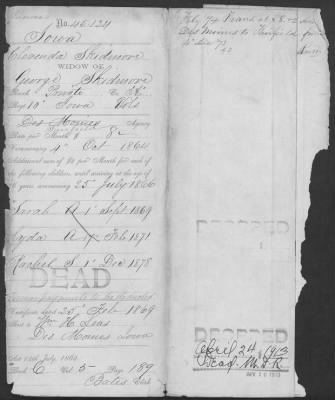 No. 46.124
Iowa
Clorinda Skidmore
WIDOW OF
George Skidmore
Rank Private Co.
Reg 10" Iowa Vols
Des Moines Agency
Rate per Month $ 8
Commencing 4" Oct 1864
Additional sum of $2 per Month for each of
the following children, until arriving at the age of
16 years, commencing 25" July 1866
Sarah A 1" Sept 1869
Lyda A Feb 1871
Rachel S 1" Dec 1878
DEAD
Certificate dated 25" Feb 1869
Sent to Wm H. Leas
Des Moines Iowa
Act 14th July, 1862.
Book C Vol. 5 Page 189
Bates, Clerk
Des Moines to
DROPPED
DROPPED
April 24, 1913
Dead. M.A.R.